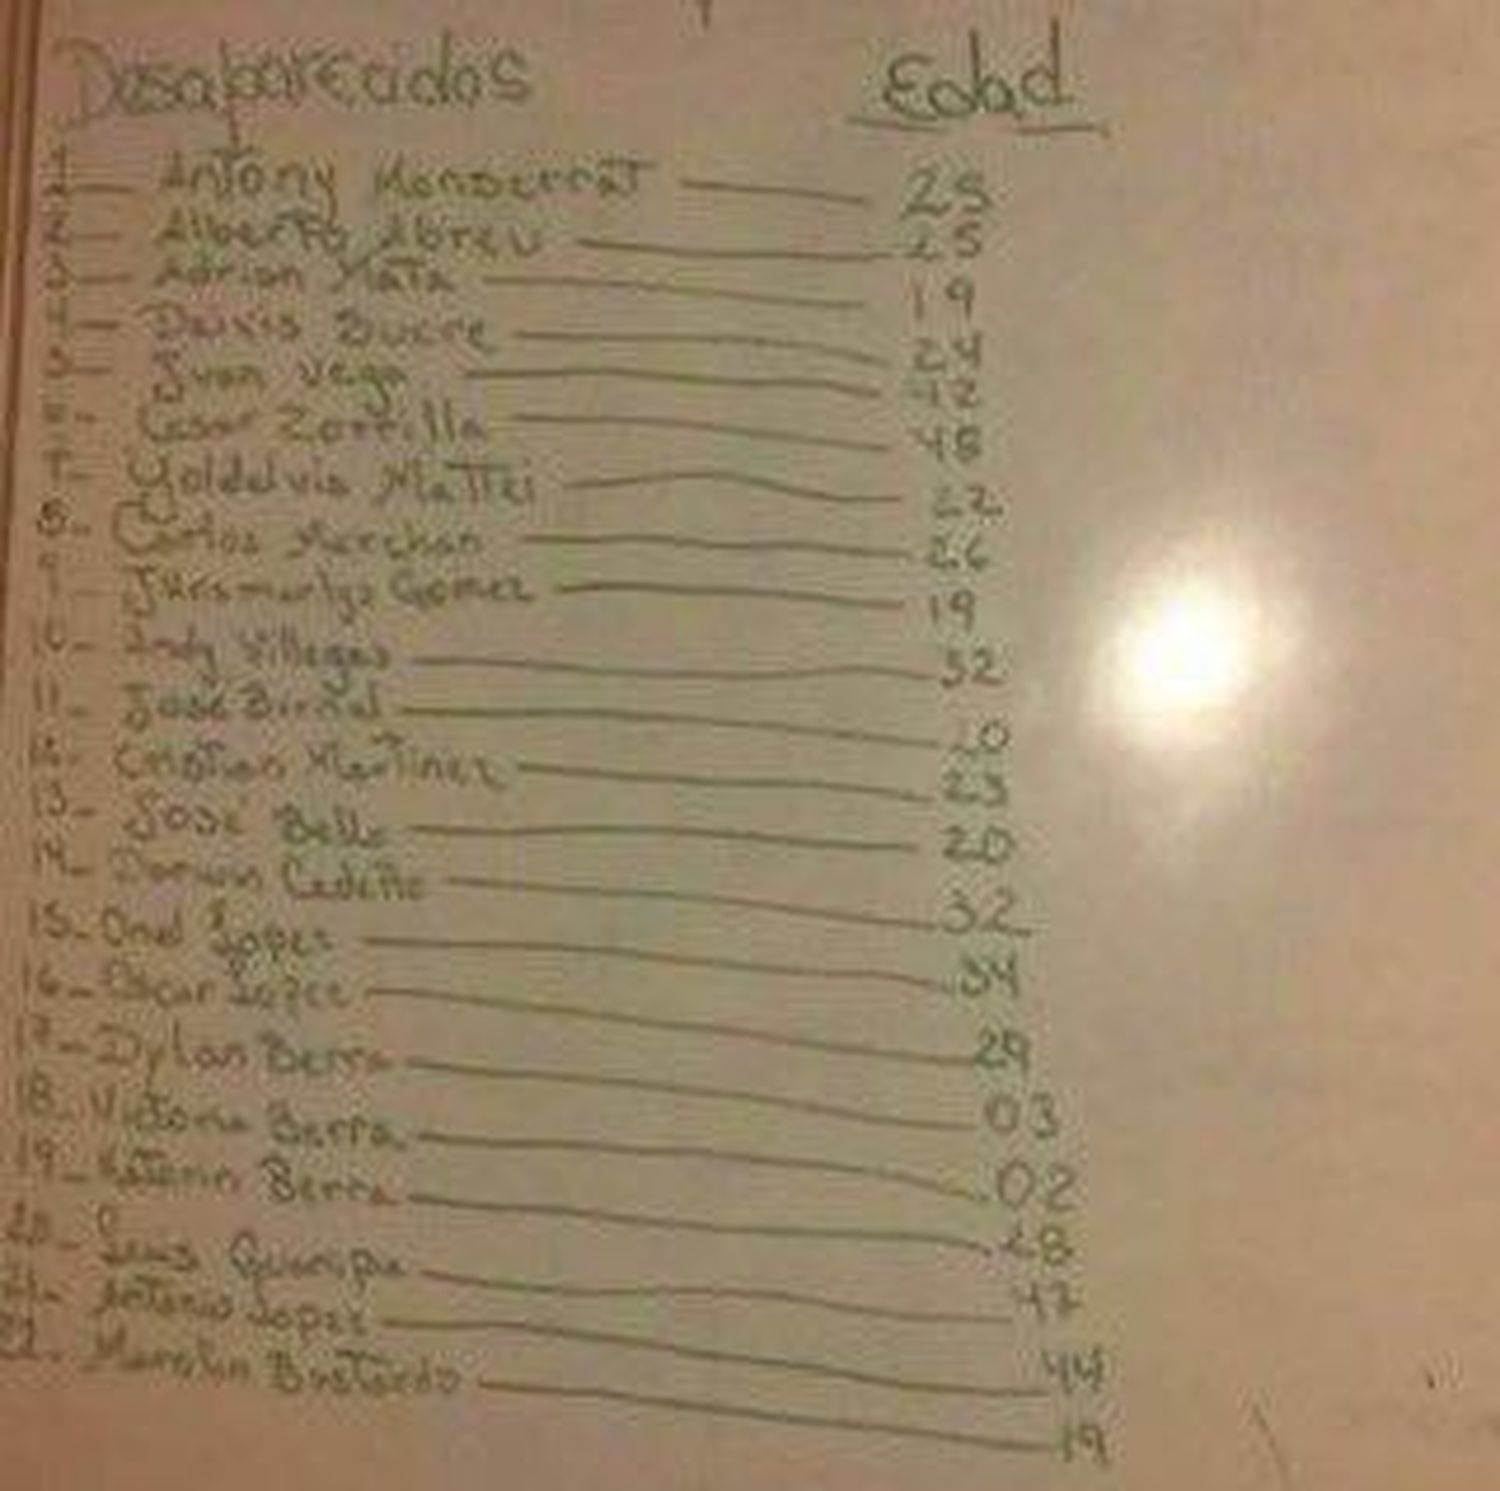 Desaparecidos Edad
1 — Antony Monserrat — 25
2 — Alberto Abreu — 25
3 — Adrian Mata — 19
4 — Deivis Sucre — 24
5 — Juan Vega — 42
6 - Cesar Zorrilla — 48
7 - Yoldelvis Mattei — 22
8 - Carlos Merchan — 26
Gomez — 19
10 - Andy Villegas — 32
11 - José — 20
12 - Cristian Martinez — 23
13 - José Bello — 20
14 - Darwin Cedeño — 32
15 - Onel Lopez — 34
16 - Oscar Lopez — 29
17 - Dylan Berra — 03
18 - Victoria Berra — 02
19 - Katerin Berra — 28
20 - Luis Guaripa — 47
21 - Antonio Lopez — 44
22 - Bastardo — 19